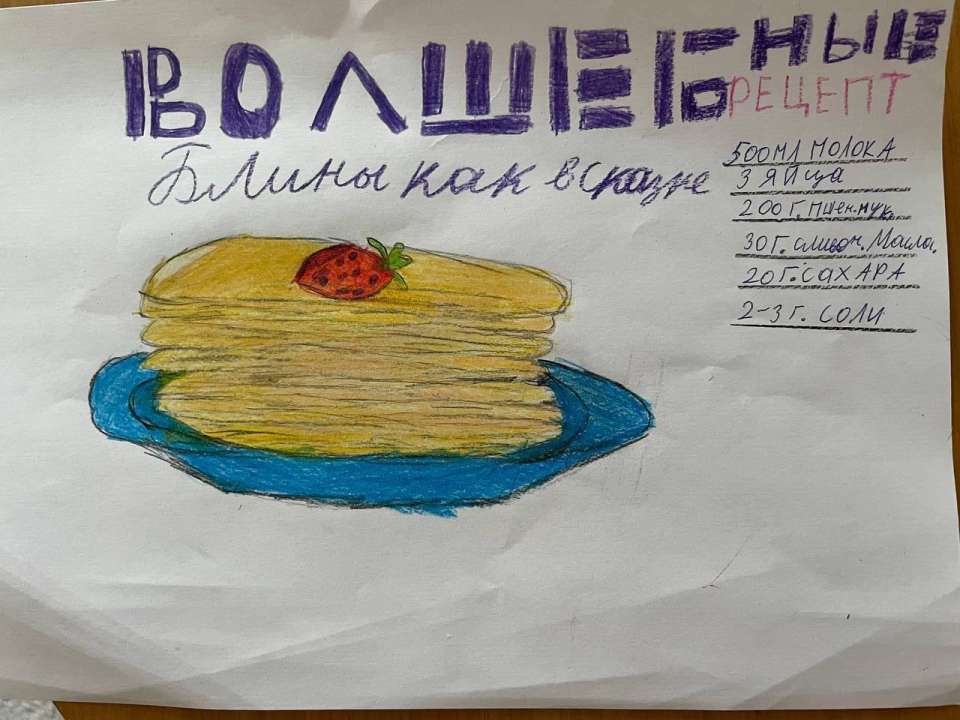 ВОЛШЕБНЫЕ
РЕЦЕПТ
Блины как в сказке
500 МЛ МОЛОКА
3 ЯЙца
200 Г. пшен. мук.
30 Г. сливоч. Масла.
20 Г. САХАРА
2-3 г. СОЛИ